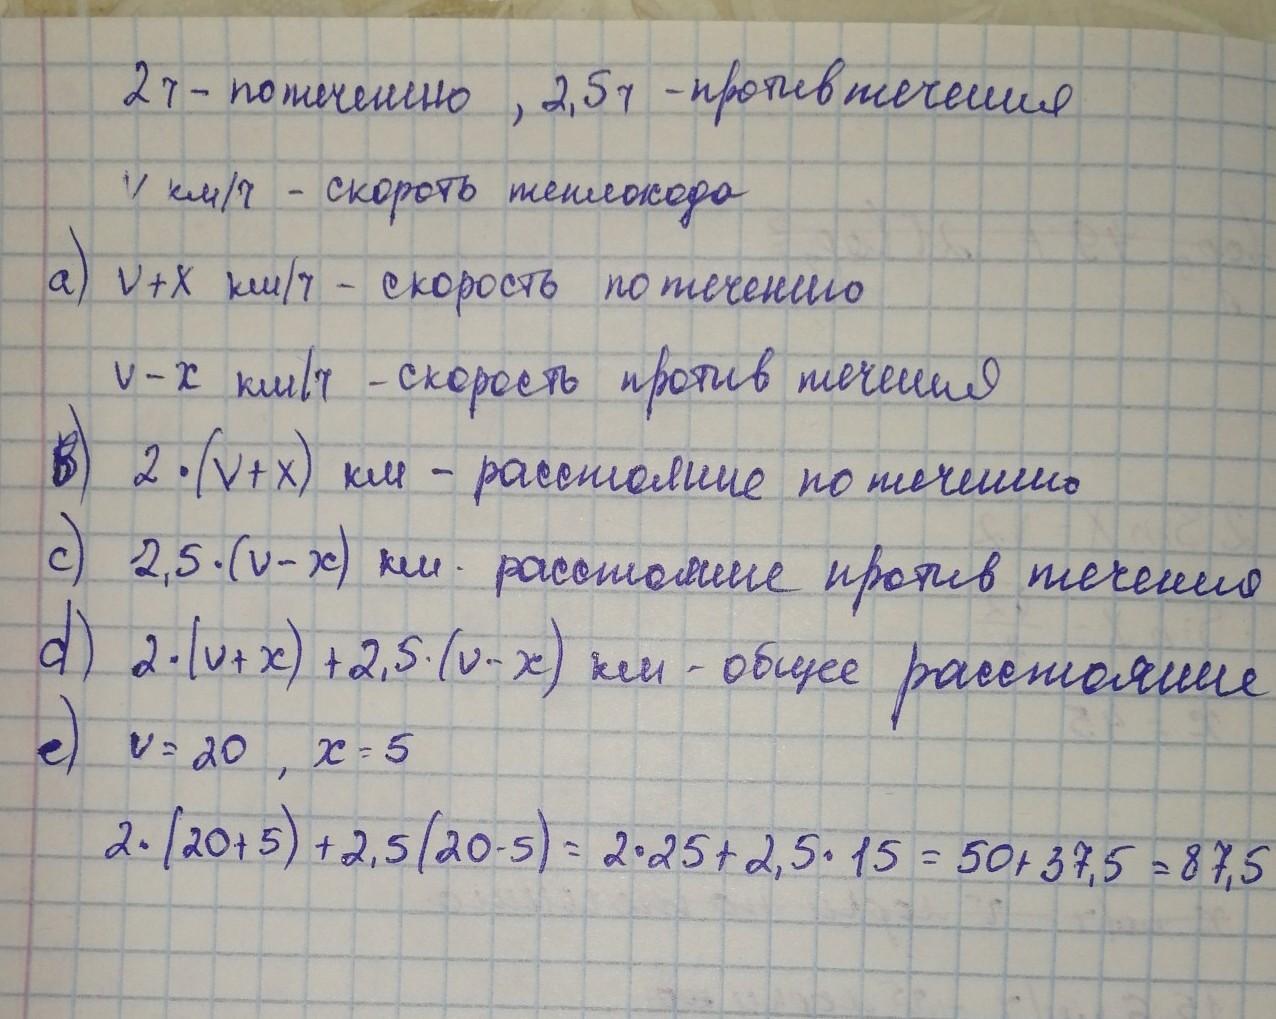 2ч - по течению , 2,5ч - против течения
v км/ч - скороть теплохода
a) v+x км/ч - скорость по течению
v-x км/ч - скорость против течения
b) 2·(v+x) км - расстояние по течению
c) 2,5·(v-x) км - расстояние против течения
d) 2·(v+x) + 2,5·(v-x) км - общее расстояние
e) v = 20 , x = 5
2·(20+5) + 2,5(20-5) = 2·25 + 2,5·15 = 50+37,5 = 87,5